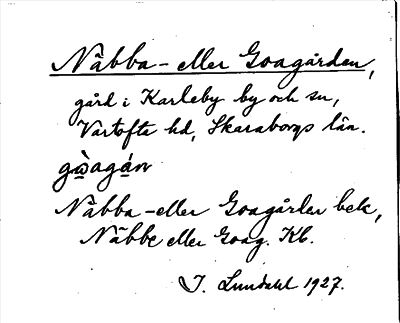 Näbba- eller Goagården,
gård i Karleby by och sn,
Vartofta hd, Skaraborgs län.
gὼagán
Näbba- eller Goagården bek,
Näbbe eller Goag. Kb.
J. Lundahl 1927.